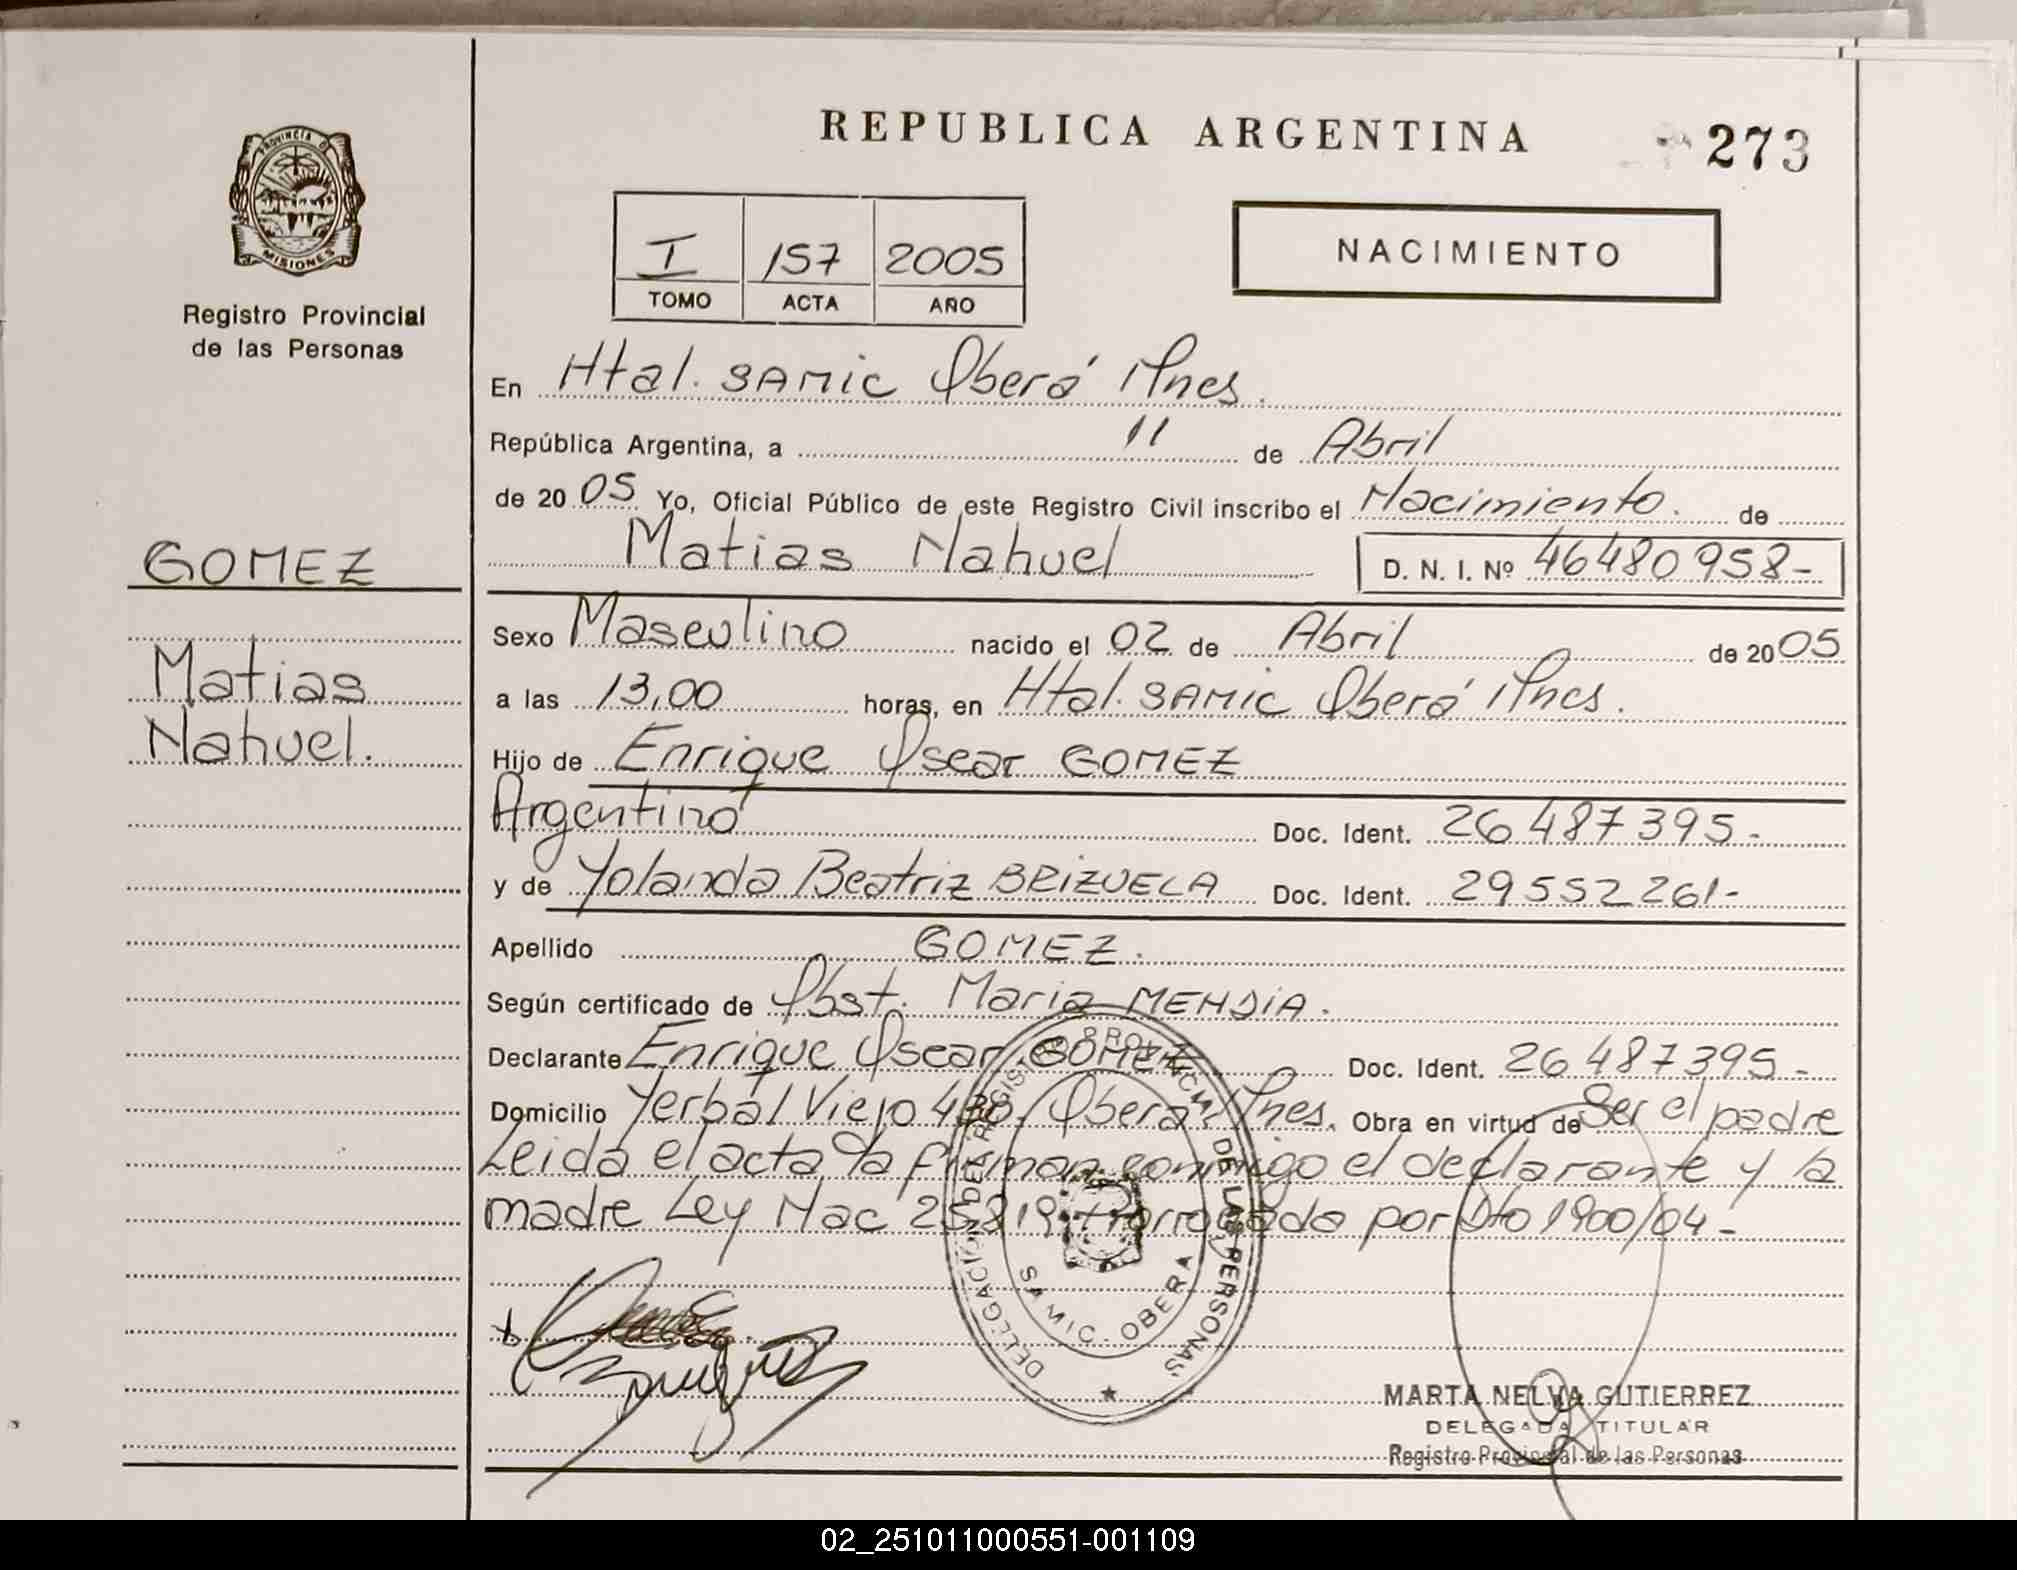 REPUBLICA ARGENTINA
273
PROVINCIA DE
MISIONES
Registro Provincial
de las Personas
I 157 2005
TOMO ACTA AÑO
NACIMIENTO
En Htal. SAMIC Oberá Mnes.
República Argentina, a 11 de Abril
de 2005 Yo, Oficial Público de este Registro Civil inscribo el Nacimiento. de
Matias Nahuel D. N. I. Nº 46480958-
GOMEZ
Matias
Nahuel.
Sexo Masculino nacido el 02 de Abril de 2005
a las 13,00 horas, en Htal. SAMIC Oberá Mnes.
Hijo de Enrique Oscar GOMEZ
Argentino Doc. Ident. 26487395-
y de Yolanda Beatriz BRIZUELA Doc. Ident. 29552261-
Apellido GOMEZ.
Según certificado de Obst. Maria MENDIA.
Declarante Enrique Oscar GOMEZ Doc. Ident. 26487395-
Domicilio Yerbal Viejo Oberá Mnes. Obra en virtud de Ser el padre
Leida el acta la firman conmigo el declarante y la
madre Ley Nac 25819 Prorrogada por Dto 1900/04-
DELEGACION DEL REGISTRO PROVINCIAL DE LAS PERSONAS
SAMIC - OBERA
MARTA NELVA GUTIERREZ
DELEGADA TITULAR
Registro Provincial de las Personas
02_251011000551-001109